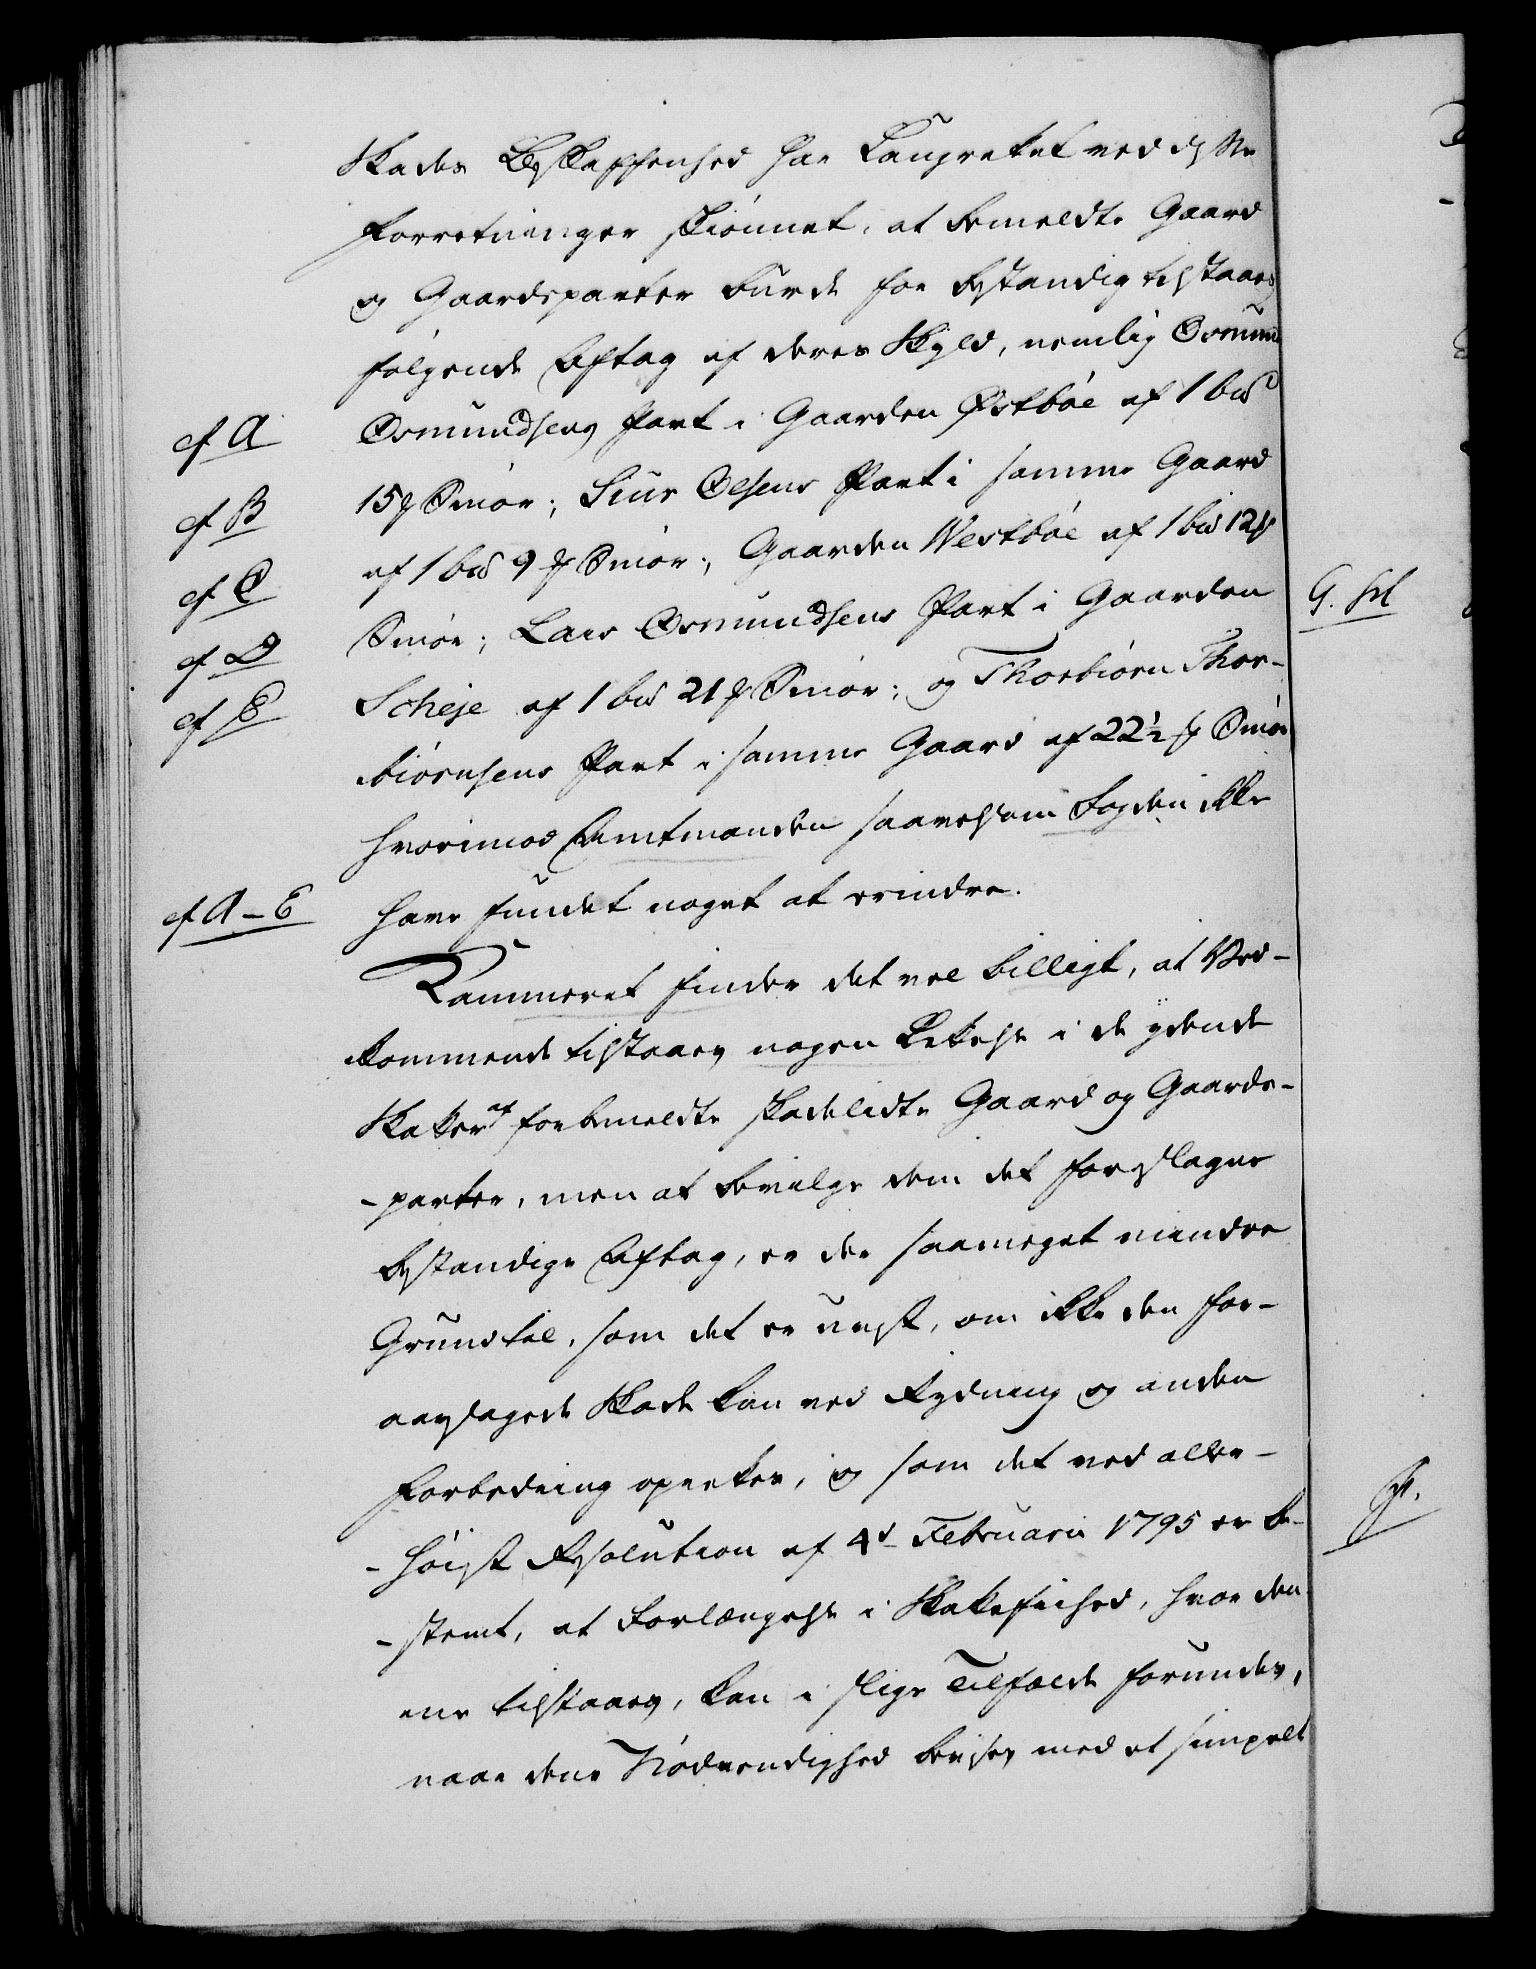 Skades Beskaffenhed har Laugrettet ved disse
Forretninger skiønnet, at bemeldte Gaard
og Gaardsparter burde for bestandig tilstaaes
følgende Aftag af deres Skyld, nemlig Osmund
cf A
Osmundsens Part i Gaarden Østbøe af 1 bɞ
cf B
15 ℔ Smør; Siur Olsens Part i samme Gaard
cf C
af 1 bɞ 9 ℔ Smør; Gaarden Westbøe af 1 bɞ 12 ℔
cf D
Smør; Lars Osmundsens Part i Gaarden
cf E
Scheje af 1 bɞ 21 ℔ Smør; og Thorbiørn Thor-
biørnsens Part i samme Gaard af 22½ ℔ Smør
hvorimod Amtmanden saavelsom Fogden ikke
cf A-E
have fundet noget at erindre.
Kammeret finder det vel billigt, at Ved-
kommende tilstaaes nogen Lettelse i de ydende
Skatter af forbemeldte skadelidte Gaard og Gaards-
-parter, men at bevilge dem det foreslagne
bestandige Aftag, er der saameget mindre
Grund til, som det er uvist, om ikke den for-
aarsagede Skade kan ved Rydning og anden
Forbedring oprettes, og som det ved aller-
-høieste Resolution af 4d Februarii 1795 er be-
-stemt, at Forlængelse i Skattefrihed, hvor den-
ne tilstaaes, kan i slige Tilfælde forundes,
naar dens Nødvendighed bevises med et simpelt
G.